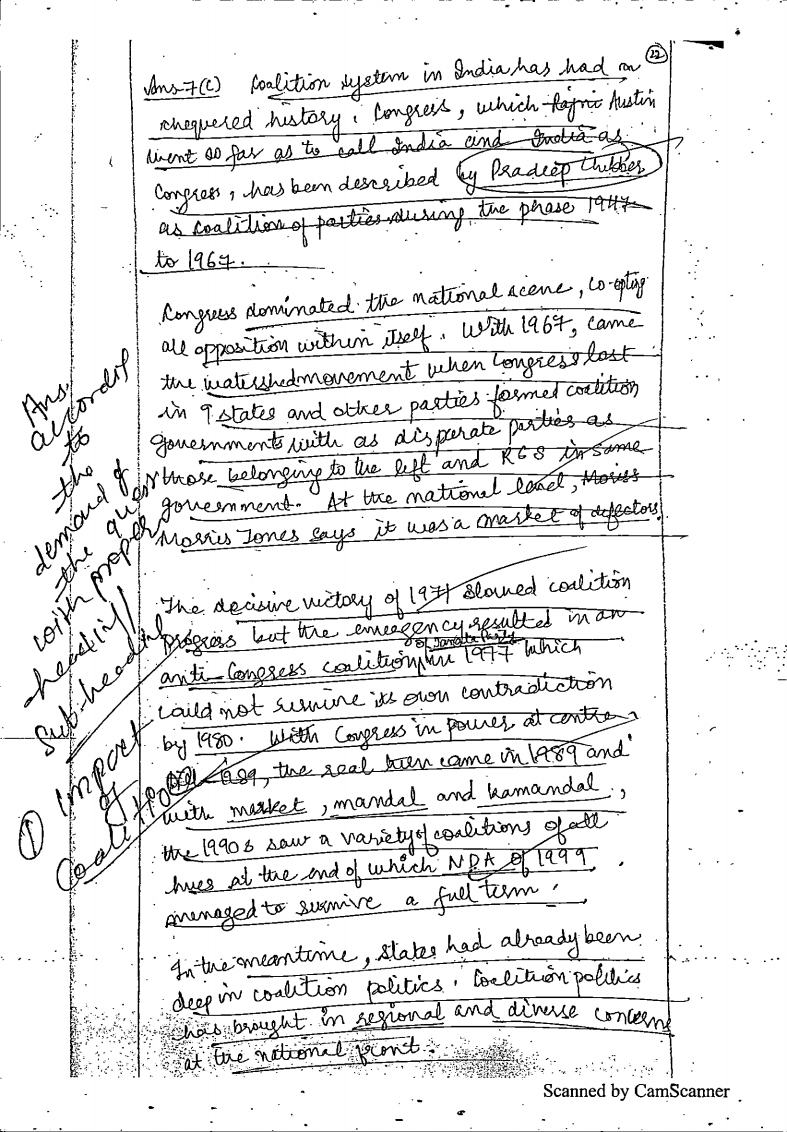 22
Ans-7(c) Coalition system in India has had a
chequered history. Congress, which Rajni Austin
went so far as to call India and India as
Congress, has been described by Pradeep Chibber
as coalition of parties during the phase 1947
to 1967.
Congress dominated the national scene, co-opting
all opposition within itself. With 1967, came
the watershed movement when Congress lost
in 9 states and other parties formed coalition
governments with as disperate parties as
those belonging to the left and RSS in same
government. At the national level, Moriss
Morris Jones says it was a market of defectors.
The decisive victory of 1971 slowed coalition
progress but the emergency resulted in an
of Janata Party
anti-Congress coalition in 1977 which
could not survive its own contradiction
by 1980. With Congress in power at centre
till 1989, the real turn came in 1989 and
with market, mandal and kamandal,
the 1990s saw a variety of coalitions of all
hues at the end of which NDA of 1999
managed to survive a full term.
In the meantime, states had already been
deep in coalition politics. Coalition politics
has brought in regional and diverse concerns
at the national front.
Ans.
according
to
the
demand of
the ques
with proper
heading/
Sub-heading
① Impact
of
Coalition
Scanned by CamScanner